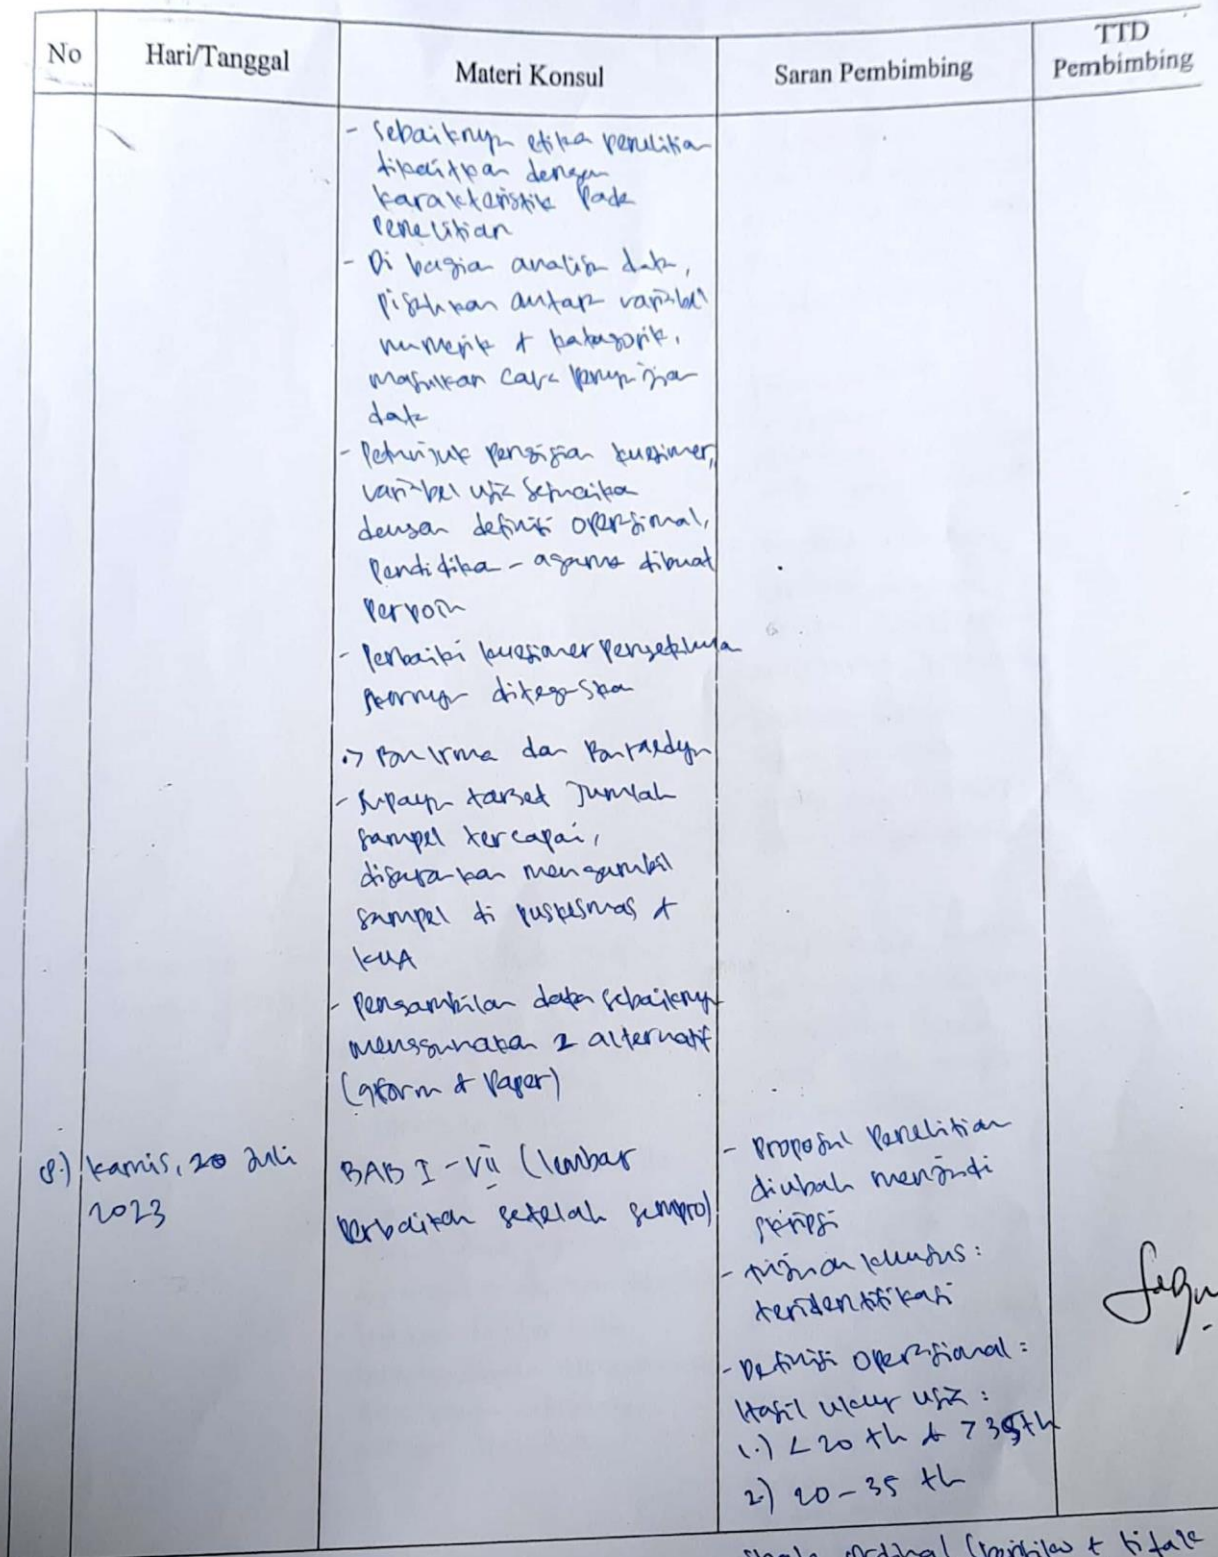 No
Hari/Tanggal
Materi Konsul
Saran Pembimbing
TTD
Pembimbing
- Sebaiknya etika penelitian
dikaitkan dengan
karakteristik pada
penelitian
- Di bagian analisa data,
pisahkan antara variabel
numerik & kategorik,
masukkan cara penyajian
data
- Petunjuk pengisian kuesioner,
variabel usia sesuaikan
dengan definisi operasional,
Pendidikan - agama dibuat
perpoin
- Perbaiki kuesioner pengetahuan
skornya ditegaskan
dan
- Supaya target jumlah
sampel tercapai,
disarankan mengambil
sampel di puskesmas &
KUA
- Pengambilan data sebaiknya
menggunakan 2 alternatif
(gform & paper)
8.)
Kamis, 20 Juli
2023
BAB I - VII (lembar
perbaikan setelah sempro)
- Proposal Penelitian
diubah menjadi
skripsi
- tujuan khusus:
teridentifikasi
- Definisi Operasional:
Hasil ukur usia:
1.) < 20 th & > 35 th
2.) 20 - 35 th
ordinal (berisiko & tidak